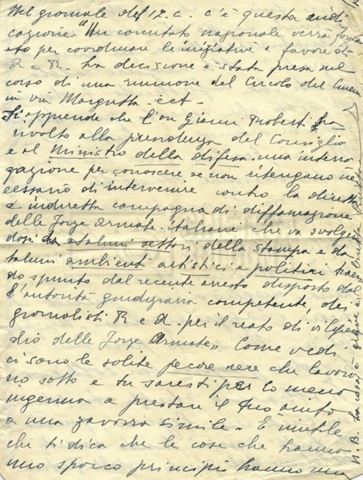 Nel giornale del 12. c. c'è questa indi
cazione "Un comitato nazionale verrà forma
to per coordinare le iniziative a favore di
R - R. La decisione è stata presa nel
corso di una riunione del Circolo del Cinema
in via Margutta ect -
Si apprende che l'on Gianni Roberti ha
rivolto alla presidenza del Consiglio
e al Ministro della difesa una interro
gazione per conoscere se non ritengano ne
cessario di intervenire contro la diretta
e indiretta campagna di diffamazione
delle Forze Armate italiane che va svolgen
dosi da taluni settori della stampa e da
talune ambienti artistici e politici trae
do spunto dal recente arresto disposto dal
l'autorità giudiziaria competente dei
giornalisti R e A. per il reato di "vilipen
dio delle Forze Armate". Come vedi
ci sono le solite pecore nere che lavora
no sotto e tu saresti per lo meno
ingenua a prestare il tuo aiuto
a una zavorra simile - È inutile
che ti dica che le cose che hanno
uno sporco principio hanno una
N.B.